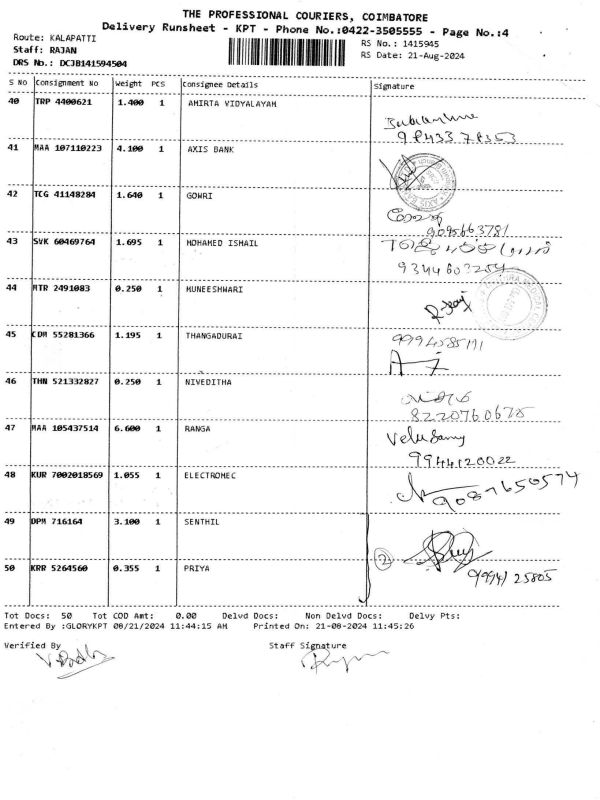 THE PROFESSIONAL COURIERS, COIMBATORE
Delivery Runsheet - KPT - Phone No.:0422-3505555 - Page No.:4
Route: KALAPATTI
Staff: RAJAN
DRS No.: DCJB141594504
RS No.: 1415945
RS Date: 21-Aug-2024
S No Consignment No Weight PCS Consignee Details Signature
40 TRP 4400621 1.400 1 AMIRTA VIDYALAYAM
41 MAA 107110223 4.100 1 AXIS BANK
42 TCG 41148284 1.640 1 GOWRI
9095663781
43 SVK 60469764 1.695 1 MOHAMED ISMAIL
9344603254
44 MTR 2491083 0.250 1 MUNEESHWARI
45 CDM 55281366 1.195 1 THANGADURAI
9994585191
46 THN 521332827 0.250 1 NIVEDITHA
8220760675
47 MAA 105437514 6.600 1 RANGA
Velusamy
9944120022
48 KUR 7002018569 1.055 1 ELECTROMEC
9087650574
49 DPM 716164 3.100 1 SENTHIL
2
50 KRR 5264560 0.355 1 PRIYA
99941 25805
Tot Docs: 50 Tot COD Amt: 0.00 Delvd Docs: Non Delvd Docs: Delvy Pts:
Entered By :GLORYKPT 08/21/2024 11:44:15 AM Printed On: 21-08-2024 11:45:26
Verified By Staff Signature